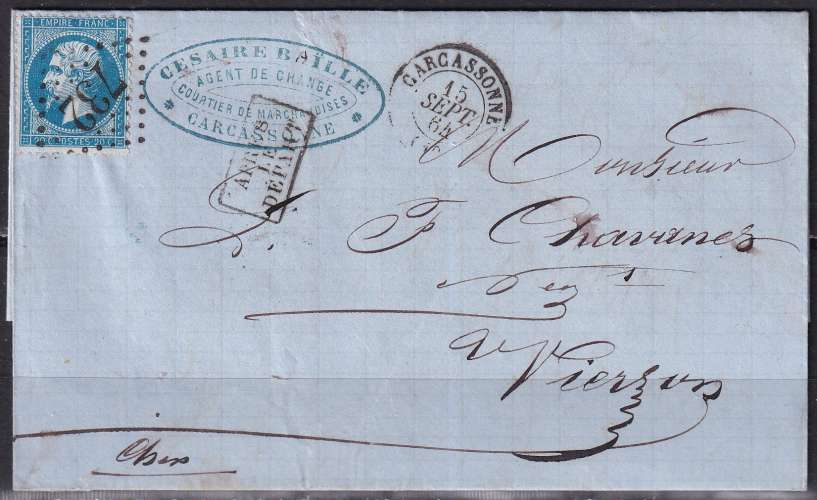 EMPIRE FRANC.
20 c POSTES 20 c
732
CESAIRE BAÏLLE
AGENT DE CHANGE
COURTIER DE MARCHANDISES
CARCASSONNE
APRÈS
LE
DÉPART
CARCASSONNE
15
SEPT.
64
Monsieur
F. Chavanes
Negt
à Vierzon
Cher